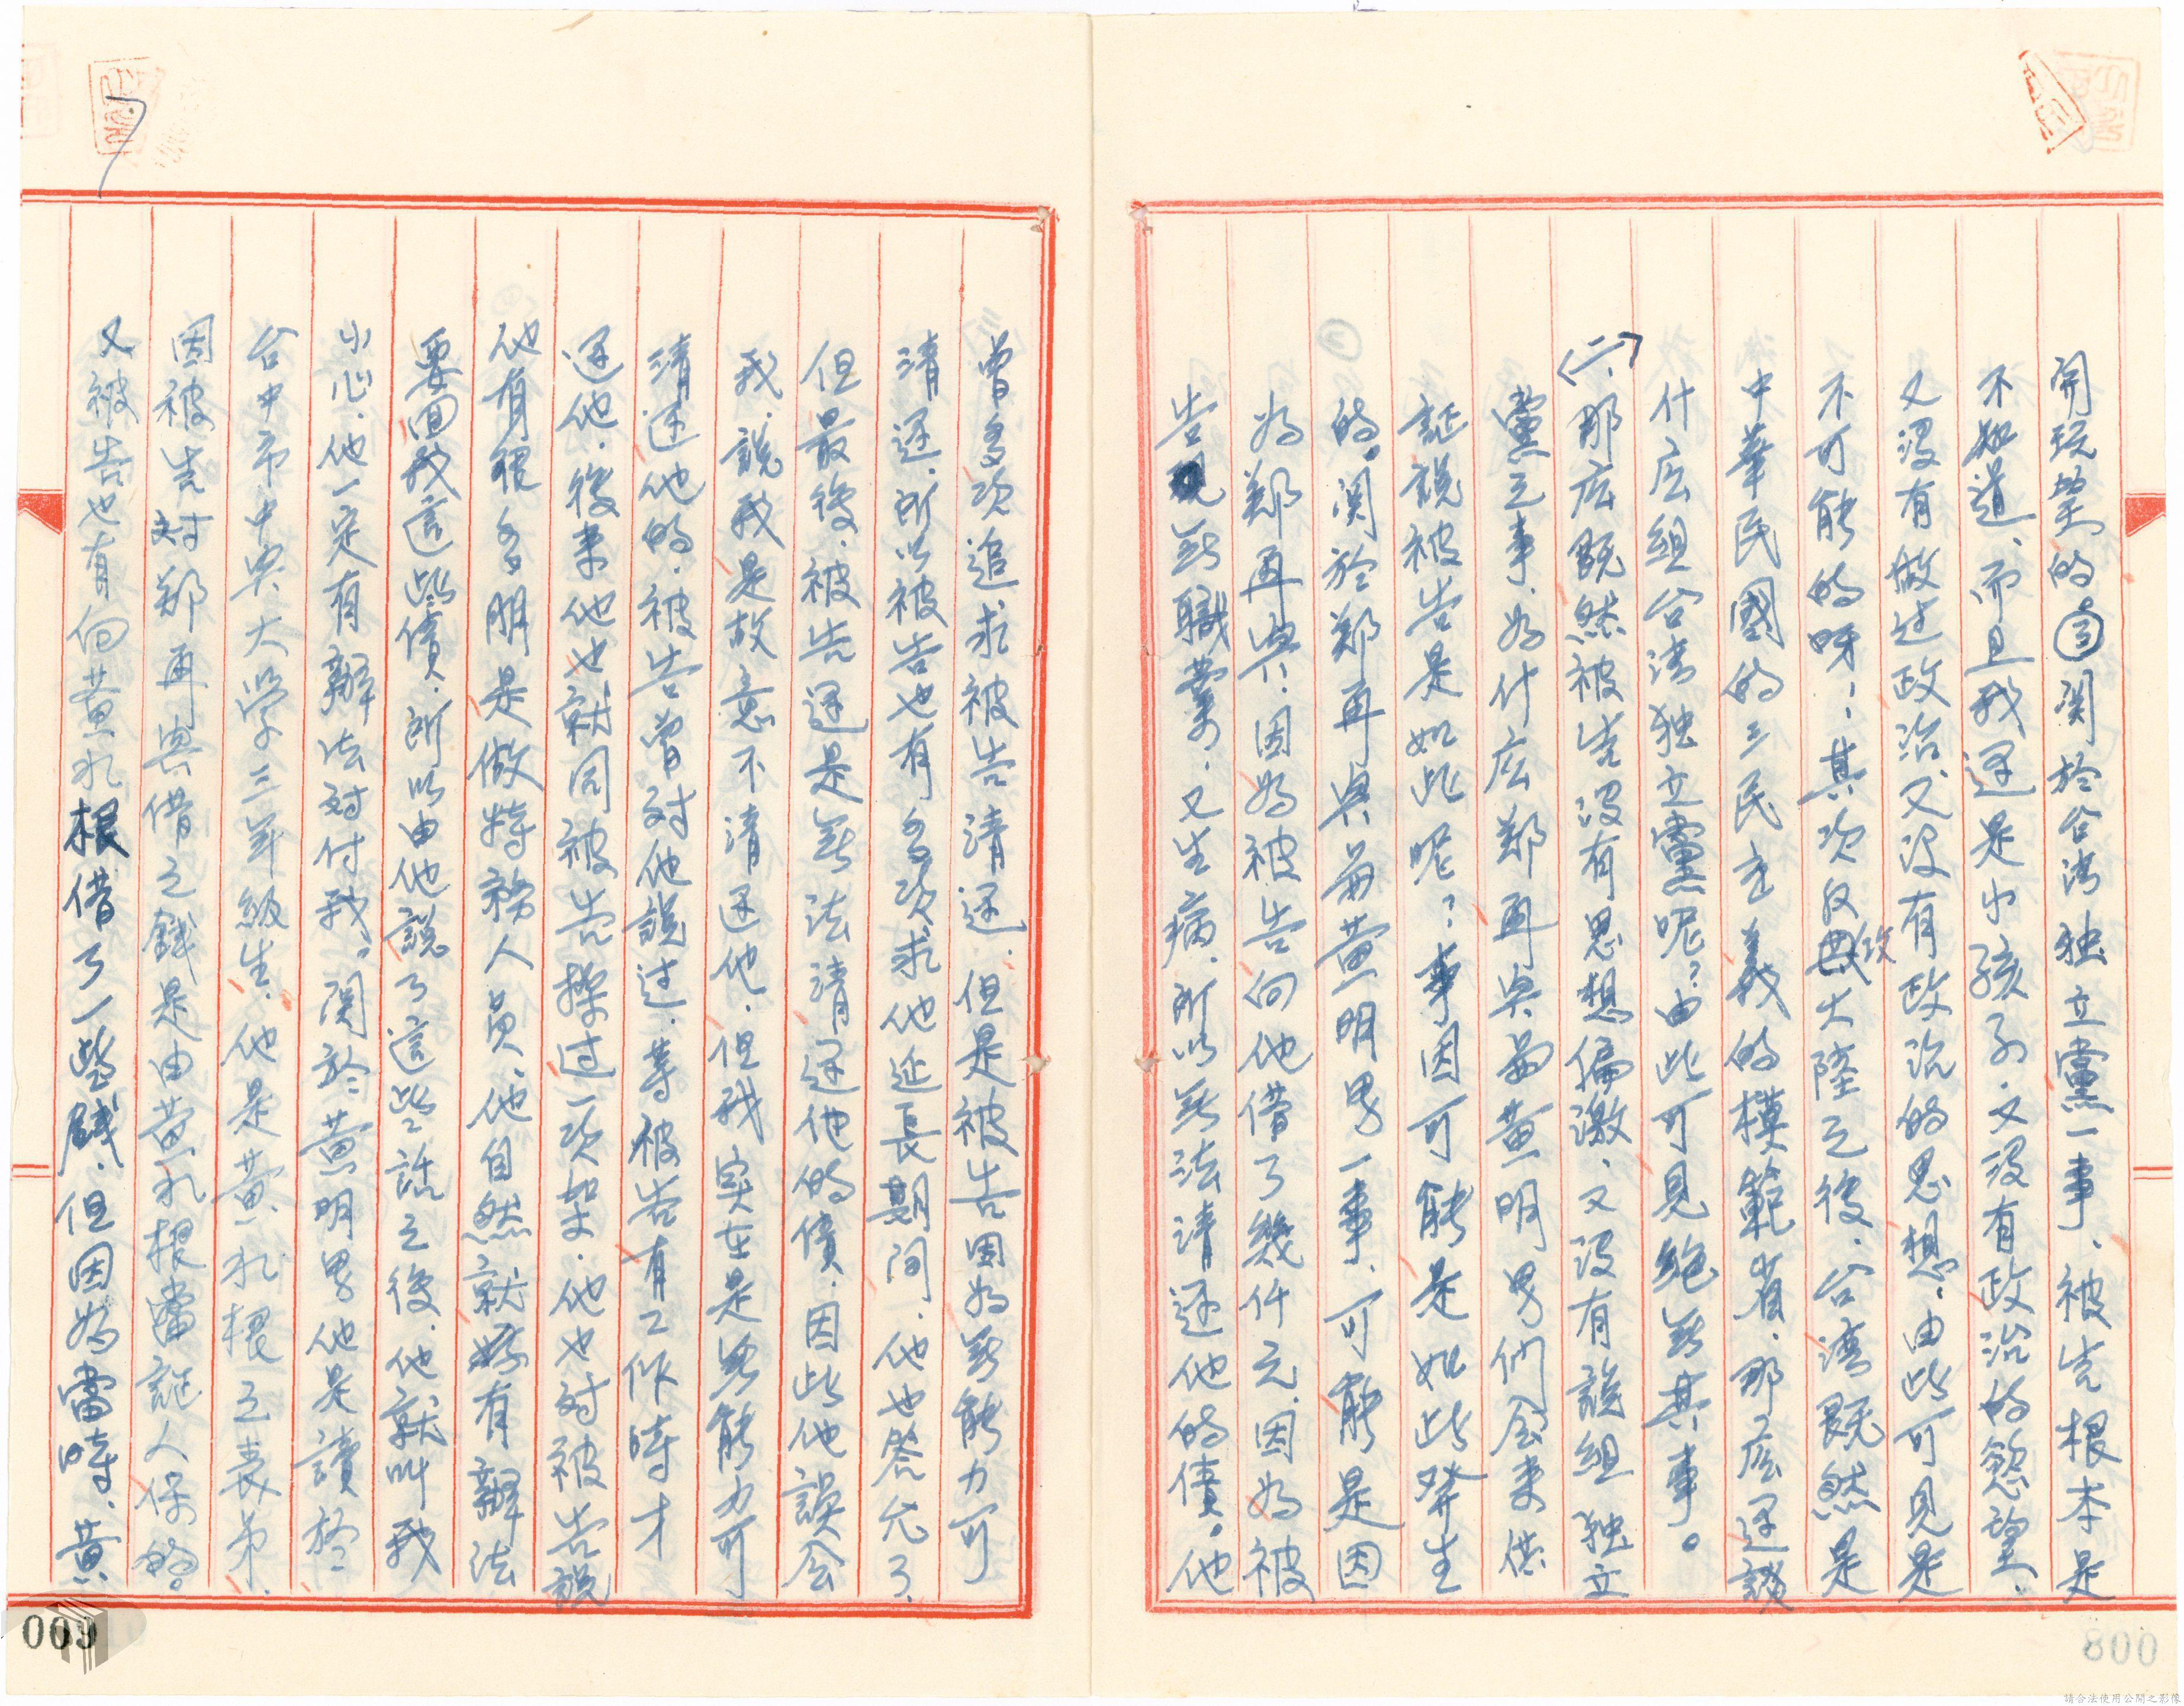 開玩笑的③関於台湾独立黨一事、被告根本是
不知道、而且我还是小孩子、又没有政治的慾望、
又没有做过政治、又没有政治的思想、由此可見是
不可能的呀!其次反攻大陸之後、台湾既然是
中華民國的三民主義的模範省、那庅还談
什庅組台湾独立黨呢?由此可見絕無其事。
(二)那庅既然被告没有思想偏激、又没有說組独立
黨之事、为什庅鄭再興與黄明男们会来供
証說被告是如此呢?事因可能是如此發生
的。関於鄭再興與黄明男一事、可能是因
为鄭再興、因为被告向他借了幾仟元、因为被
告無職業、又生病、所以無法清还他的債。他
曾多次追求被告清还、但是被告因为無能力可
清还、所以被告也有多次求他延長期间、他也答允了、
但最後、被告还是無法清还他的債、因此他誤会
我、說我是故意不清还他、但我実在是無能力可
清还他的、被告曾对他說过、等被告有工作時才
还他、後来他也就同被告操过一次架、他也对被告說
他有很多朋是做特務人員、他自然就好有辦法
要回我這些債、所以由他說了這些話之後、他就叫我
小心、他一定有辦法对付我。関於黄明男他是讀於
台中市中央大学三年級生、他是黄永根之表弟、
因被告对鄭再興借之錢是由黄永根當証人保的。
又被告也有向黄永根借了一些錢、但因为當時、黄
7
009
008
請合法使用公開之影像